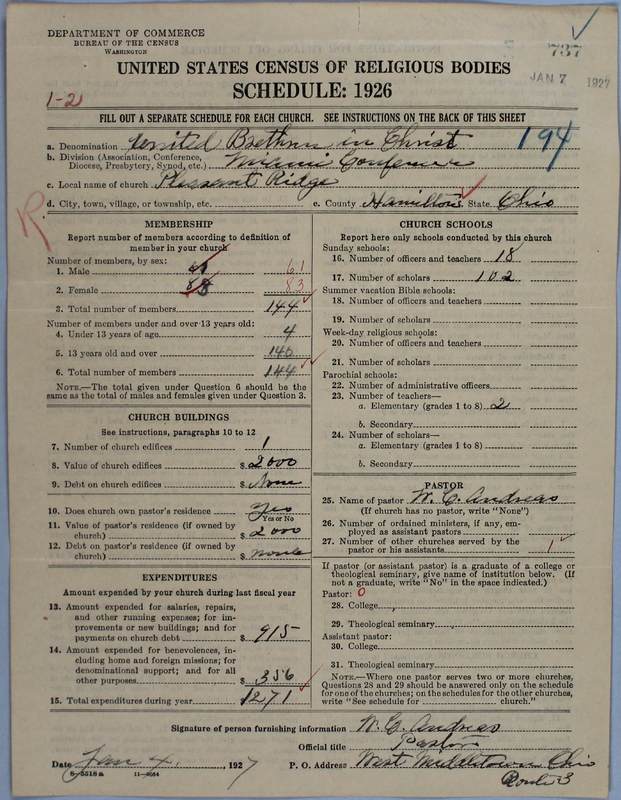 DEPARTMENT OF COMMERCE
BUREAU OF THE CENSUS
WASHINGTON
737
JAN 7 1927
UNITED STATES CENSUS OF RELIGIOUS BODIES
SCHEDULE: 1926
1-2
FILL OUT A SEPARATE SCHEDULE FOR EACH CHURCH. SEE INSTRUCTIONS ON THE BACK OF THIS SHEET
194
a. Denomination United Brethren in Christ
b. Division (Association, Conference, Diocese, Presbytery, Synod, etc.) Miami Conference
c. Local name of church Pleasant Ridge
d. City, town, village, or township, etc. e. County Hamilton State Ohio
R
MEMBERSHIP
Report number of members according to definition of
member in your church
Number of members, by sex:
1. Male 61
2. Female 88 83
3. Total number of members 144
Number of members under and over 13 years old:
4. Under 13 years of age 4
5. 13 years old and over 140
6. Total number of members 144
NOTE.—The total given under Question 6 should be
same as the total of males and females given under Question 3.
CHURCH BUILDINGS
See instructions, paragraphs 10 to 12
7. Number of church edifices 1
8. Value of church edifices $ 2000
9. Debt on church edifices $ None
10. Does church own pastor's residence Yes
Yes or No
11. Value of pastor's residence (if owned by
church) $ 2000
12. Debt on pastor's residence (if owned by
church) $ none
EXPENDITURES
Amount expended by your church during last fiscal year
13. Amount expended for salaries, repairs,
and other running expenses; for im-
provements or new buildings; and for
payments on church debt $ 915
14. Amount expended for benevolences, in-
cluding home and foreign missions; for
denominational support; and for all
other purposes $ 356
15. Total expenditures during year 1271
CHURCH SCHOOLS
Report here only schools conducted by this church
Sunday schools:
16. Number of officers and teachers 18
17. Number of scholars 102
Summer vacation Bible schools:
18. Number of officers and teachers
19. Number of scholars
Week-day religious schools:
20. Number of officers and teachers
21. Number of scholars
Parochial schools:
22. Number of administrative officers
23. Number of teachers—
a. Elementary (grades 1 to 8) 2
b. Secondary
24. Number of scholars—
a. Elementary (grades 1 to 8)
b. Secondary
PASTOR
25. Name of pastor W. C. Andreas
(If church has no pastor, write "None")
26. Number of ordained ministers, if any, em-
ployed as assistant pastors
27. Number of other churches served by the
pastor or his assistants 1
If pastor (or assistant pastor) is a graduate of a college or
theological seminary, give name of institution below. (If
not a graduate, write "No" in the space indicated.)
Pastor: 0
28. College
29. Theological seminary
Assistant pastor:
30. College
31. Theological seminary
NOTE.—Where one pastor serves two or more churches,
Questions 28 and 29 should be answered only on the schedule
for one of the churches; on the schedules for the other churches,
write "See schedule for church."
Signature of person furnishing information W. C. Andreas
Official title Pastor
Date Jan 4, 1927 P. O. Address West Middletown Ohio
8-5518a 11-9064
Route 3